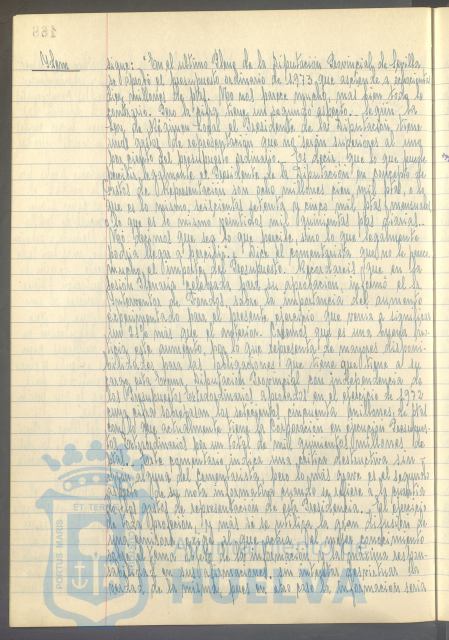 Idem
sigue: "En el ultimo Pleno de la Diputación Provincial de Sevilla
se aprobó el presupuesto ordinario de 1973, que asciende a ochocientos
diez millones de ptas. No nos parece mucho, mas bien todo lo
contrario. Pero la cifra tiene un segundo aspecto. Según la
Ley de Régimen Local el Presidente de la Diputación, tiene
unos gastos de representación que no serán superiores al uno
por ciento del presupuesto ordinario. Es decir, que lo que puede
percibir legalmente el Presidente de la Diputación en concepto de
Gastos de Representación son ocho millones cien mil ptas, o lo
que es lo mismo, seiscientas setenta y cinco mil ptas mensuales
o lo que es lo mismo veintidos mil quinientas ptas diarias.
No decimos que sea lo que percibe, sino lo que legalmente
podria llegar a percibir". Dice el comentarista que no le parece
mucho, el importe del Presupuesto. Recordareis que en la
Sesión Plenaria celebrada para su aprobación, informó el
Interventor de Fondos sobre la importancia del aumento
experimentado para el presente ejercicio que venia a significar
un 25% más que el anterior. Creemos que es una buena no-
ticia este aumento, por lo que representa de mayores disponi-
bilidades para las obligaciones que tiene a su
cargo esta Excma. Diputación Provincial con independencia de
los Presupuestos extraordinarios aprobados en el ejercicio de 1972
cuya cifra sobrepasan los setecientos cincuenta millones de ptas
con lo que actualmente tiene la Corporación en ejecución Presupues-
tos extraordinarios por un total de mil quinientos millones de
ptas. Este comentario indica una crítica destructiva sin
alguna del comentarista, pero lo más grave es el segundo
de su nota informativa cuando se refiere a la cuantía
de los gastos de representación de esta Presidencia. El ejercicio
de esta profesión, y más si se utiliza la gran difusión de
una emisora exige el que haya el mayor conocimiento
del tema objeto de la información y la máxima respon-
sabilidad en sus afirmaciones, sin intentar desvirtuar la
verdad de la misma, pues en ese caso la información seria
PORTUS MARIS
ET TERRAE
HUELVA